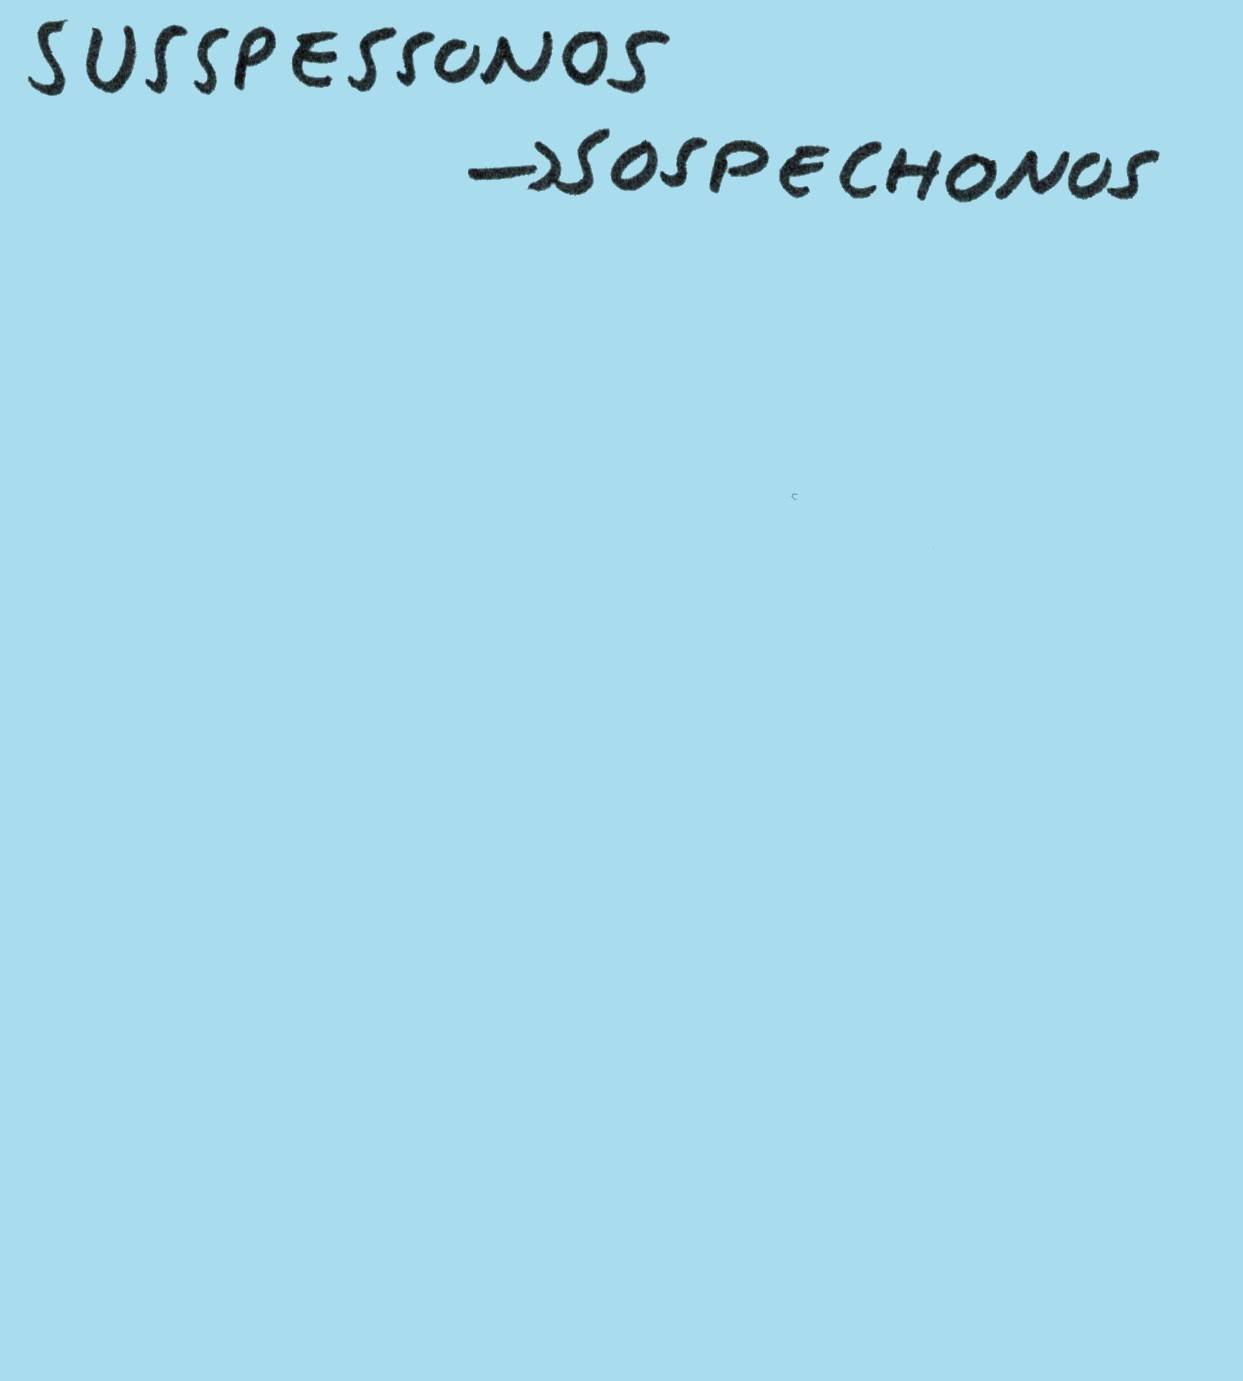 SUSSPESSONOS
→SOSPECHONOS